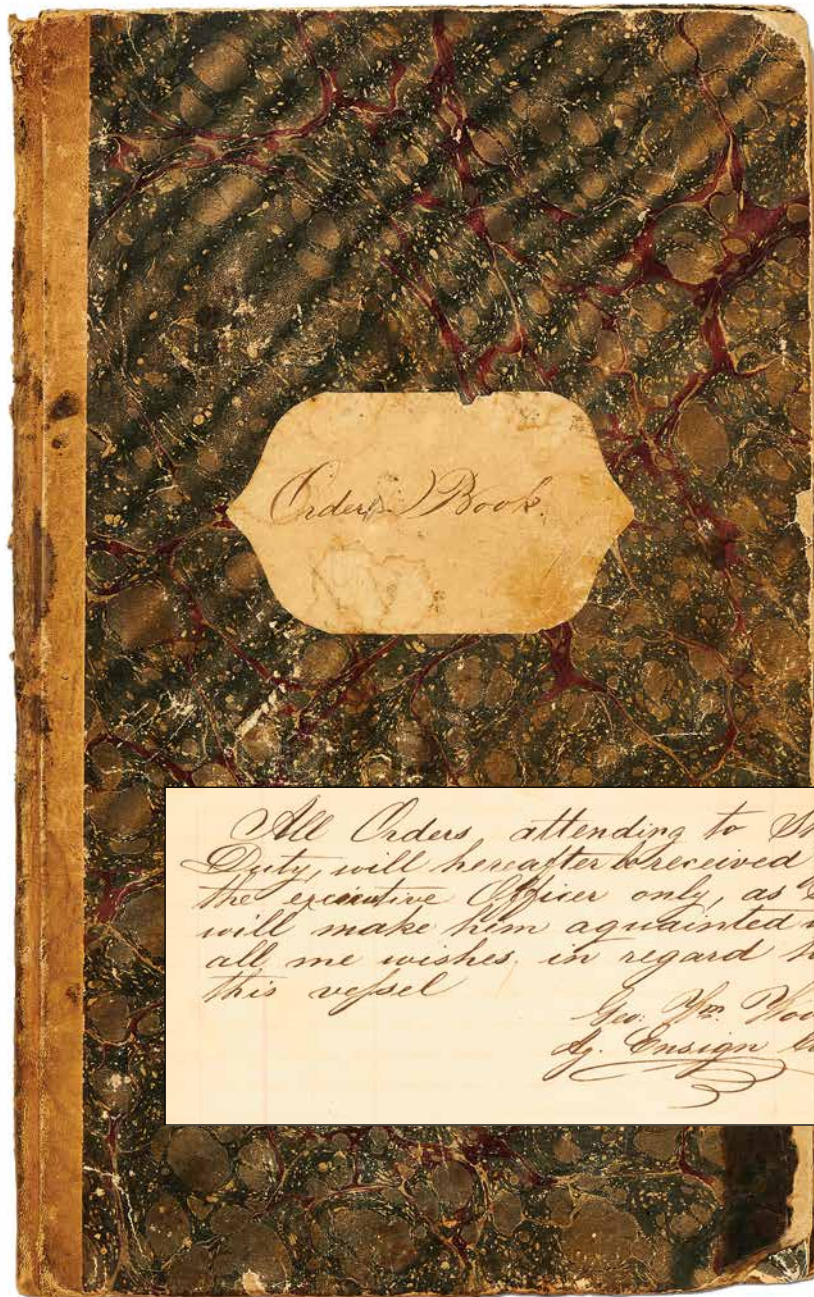 Order Book.
All Orders, attending to
Duty, will hereafter be received
the executive Officer only, as
will make him aquainted
all me wishes. in regard
this vessel
Geo: Wm.
Ag. Ensign